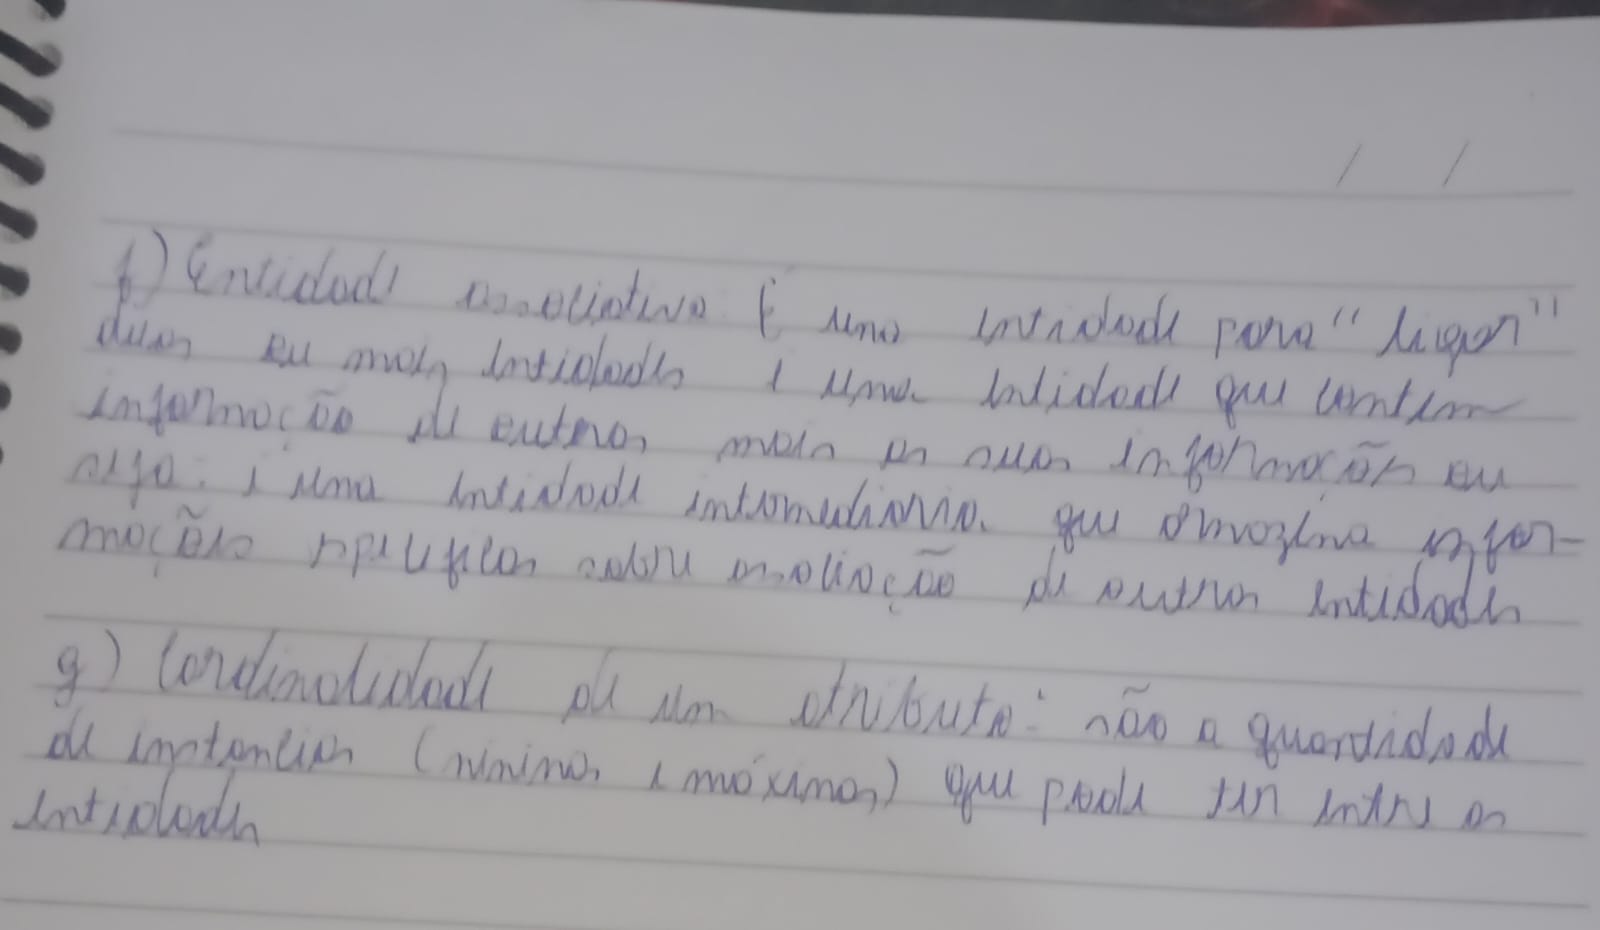 f) Entidade associativa É uma entidade para "ligar"
duas ou mais entidades e uma entidade que contem
informação de outras mais as suas informações ou
seja: e uma entidade intermediaria que armazena infor-
mações especificas sobre associação de outras entidades
g) Cardinalidade de um atributo: são a quantidade
de instancias (minimas e máximas) que pode ter entre as
entidades